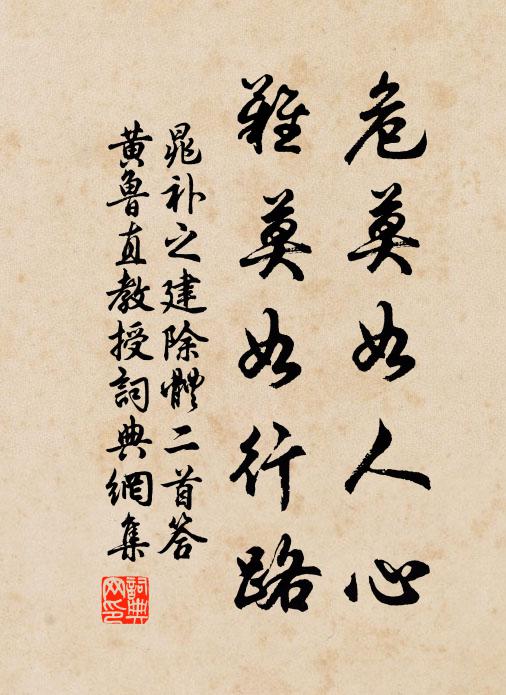 危莫如人心
難莫如行路
晁补之建除體二首答
黄魯直教授詞典網集
詞典网印